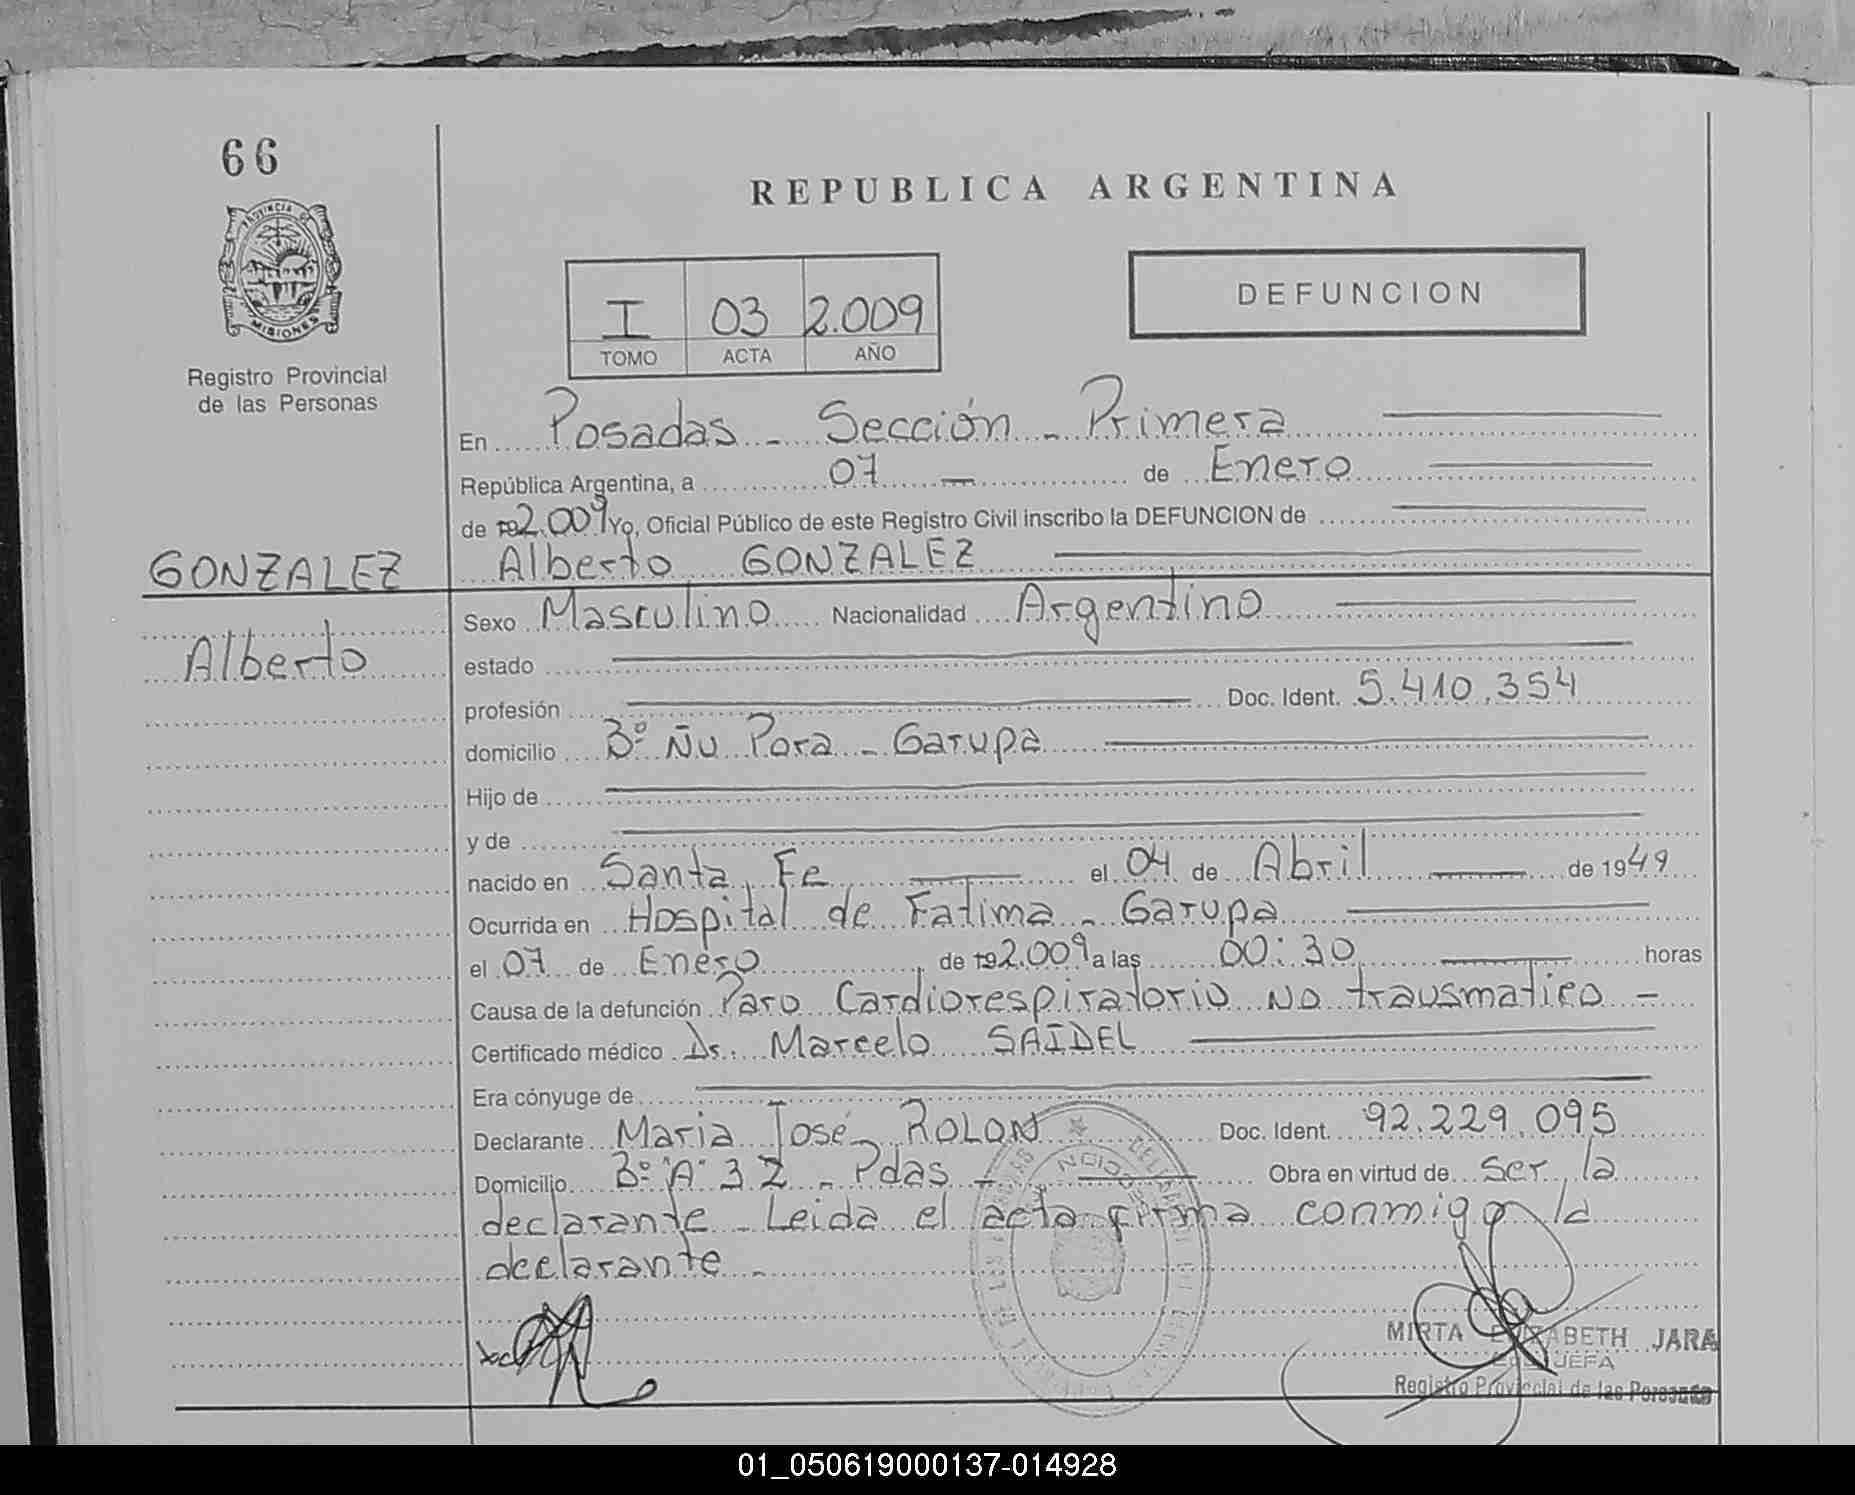 66
PROVINCIA DE
MISIONES
Registro Provincial
de las Personas
REPUBLICA ARGENTINA
I 03 2.009
TOMO ACTA AÑO
DEFUNCION
En Posadas - Sección - Primera
República Argentina, a 07 - de Enero
de 19 2.009 Yo, Oficial Público de este Registro Civil inscribo la DEFUNCION de
GONZALEZ Alberto GONZALEZ
Sexo Masculino Nacionalidad Argentino
Alberto
estado
profesión Doc. Ident. 5.410.354
domicilio Bº Ñu Pora - Garupa
Hijo de
y de
nacido en Santa Fe el 04 de Abril de 1949
Ocurrida en Hospital de Fatima - Garupa
el 07 de Enero de 19 2.009 a las 00:30 horas
Causa de la defunción Paro Cardiorespiratorio no trausmatico -
Certificado médico Dr. Marcelo SAIDEL
Era cónyuge de
Declarante Maria José ROLON Doc. Ident. 92.229.095
Domicilio Bº "A" 3 2 - Pdas - Obra en virtud de ser la
declarante - Leida el acta firma conmigo la
declarante -
MIRTA ELIZABETH JARA
JEFA
Registro Provincial de las Personas
01_050619000137-014928